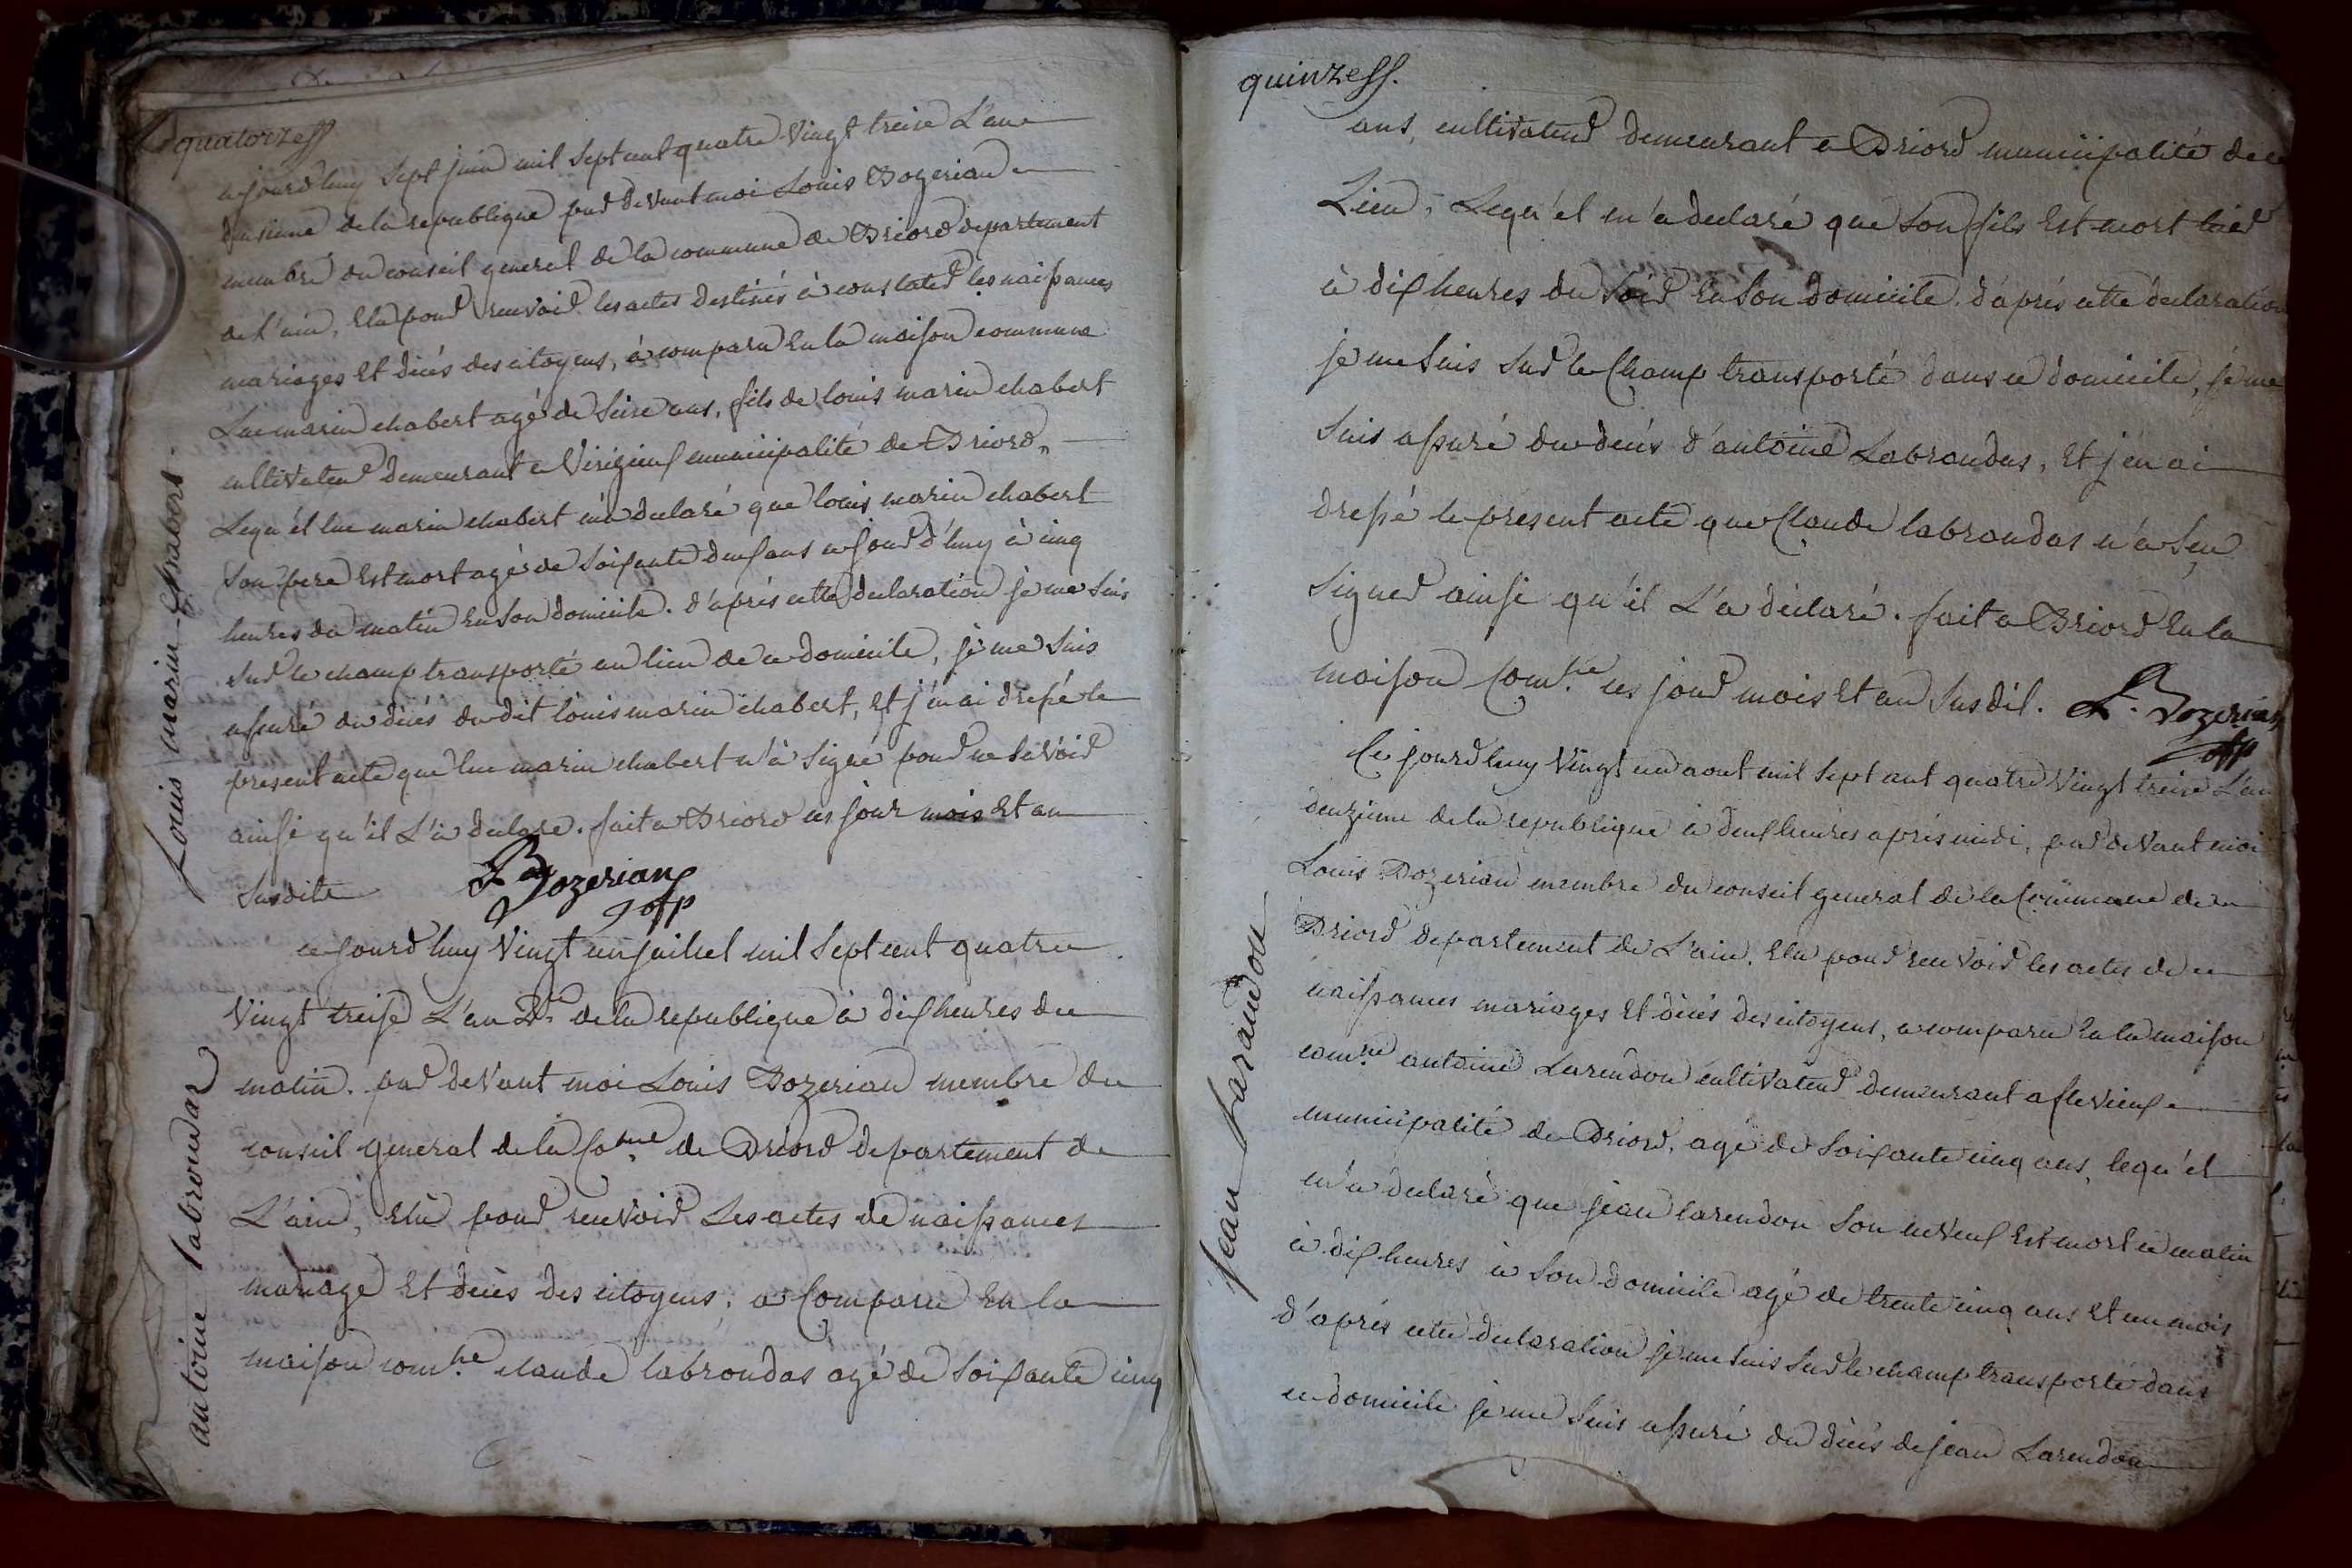 quatorze
cejourdhuy sept juin mil sept cent quatre vingt treise L'an
deusieme de la republique par devant moi Louis Bozerian
membre du conseil general de la commune de Briord departement
de L'ain, Elu pour recevoir les actes destinés à constater les naissances
mariages Et décés des citoyens, à comparu En la maison commune
Luc marin chabert agé de seise ans, fils de louis marin chabert
cultivateur demeurant a Verizieux municipalité de Briord,
Lequ'el luc marin chabert m'a declaré que louis marin chabert
son pere Est mort agé de soixante deux ans cejourd'huy à cinq
heures du matin En son domicile. d'aprés cette declaration je me suis
sur le champ transporté au lieu de ce domicile, je me suis
assuré du décés du dit louis marin chabert, Et j'en ai dressé le
present acte que luc marin chabert n'à signé pour ne savoir
ainsi qu'il L'à declaré. fait a Briord ces jour mois Et an
susdits L Bozerian off p
Louis marin Chabert
ce jourd'huy Vingt un juillet mil sept cent quatre
Vingt treise L'an 2e de la republique à dix heures du
matin. par devant moi Louis Bozerian membre du
conseil general de la Come de Briord departement de
L'ain, Elu pour recevoir Les actes de naissances
mariage Et décés des citoyens, a Comparu En la
maison comne claude labroudas agé de soixante cinq
antoine labroudas
quinze
ans, cultivateur demeurant a Briord municipalité de ce
Lieu, Lequ'el m'a declaré que son fils Est mort hier
à dix heures du soir En son domicile. d'aprés cette declaration
je me suis sur le Champ transporté dans ce domicile, je me
suis assuré du decés d'antoine Labroudas, Et j'en ai
dressé le present acte que Claude labroudas n'a seu
signer ainsi qu'il L'a déclaré. fait a Briord En la
maison Comne ces jour mois Et an susdit. L. Bozerian
off p
Ce jourdhuy Vingt un aout mil sept cent quatre Vingt treise L'an
deuzieme de la republique à deux heures aprés midi, par devant moi
Louis Bozerian membre du conseil general de la Commune de
Briord departement de L'ain. Elu pour recevoir les actes de
naissances mariages Et décés des citoyens, a comparu En la maison
comne antoine Larendon cultivateur demeurant a flevieux
municipalité de Briord, agé de soixante cinq ans, lequ'el
m'a declaré que jean larendon son neveux Est mort ce matin
à dix heures à son domicile agé de trente cinq ans Et un mois
d'aprés cette declaration je me suis sur le champ transporté dans
ce domicile je me suis assuré du décés de jean Larendon
jean Larandon